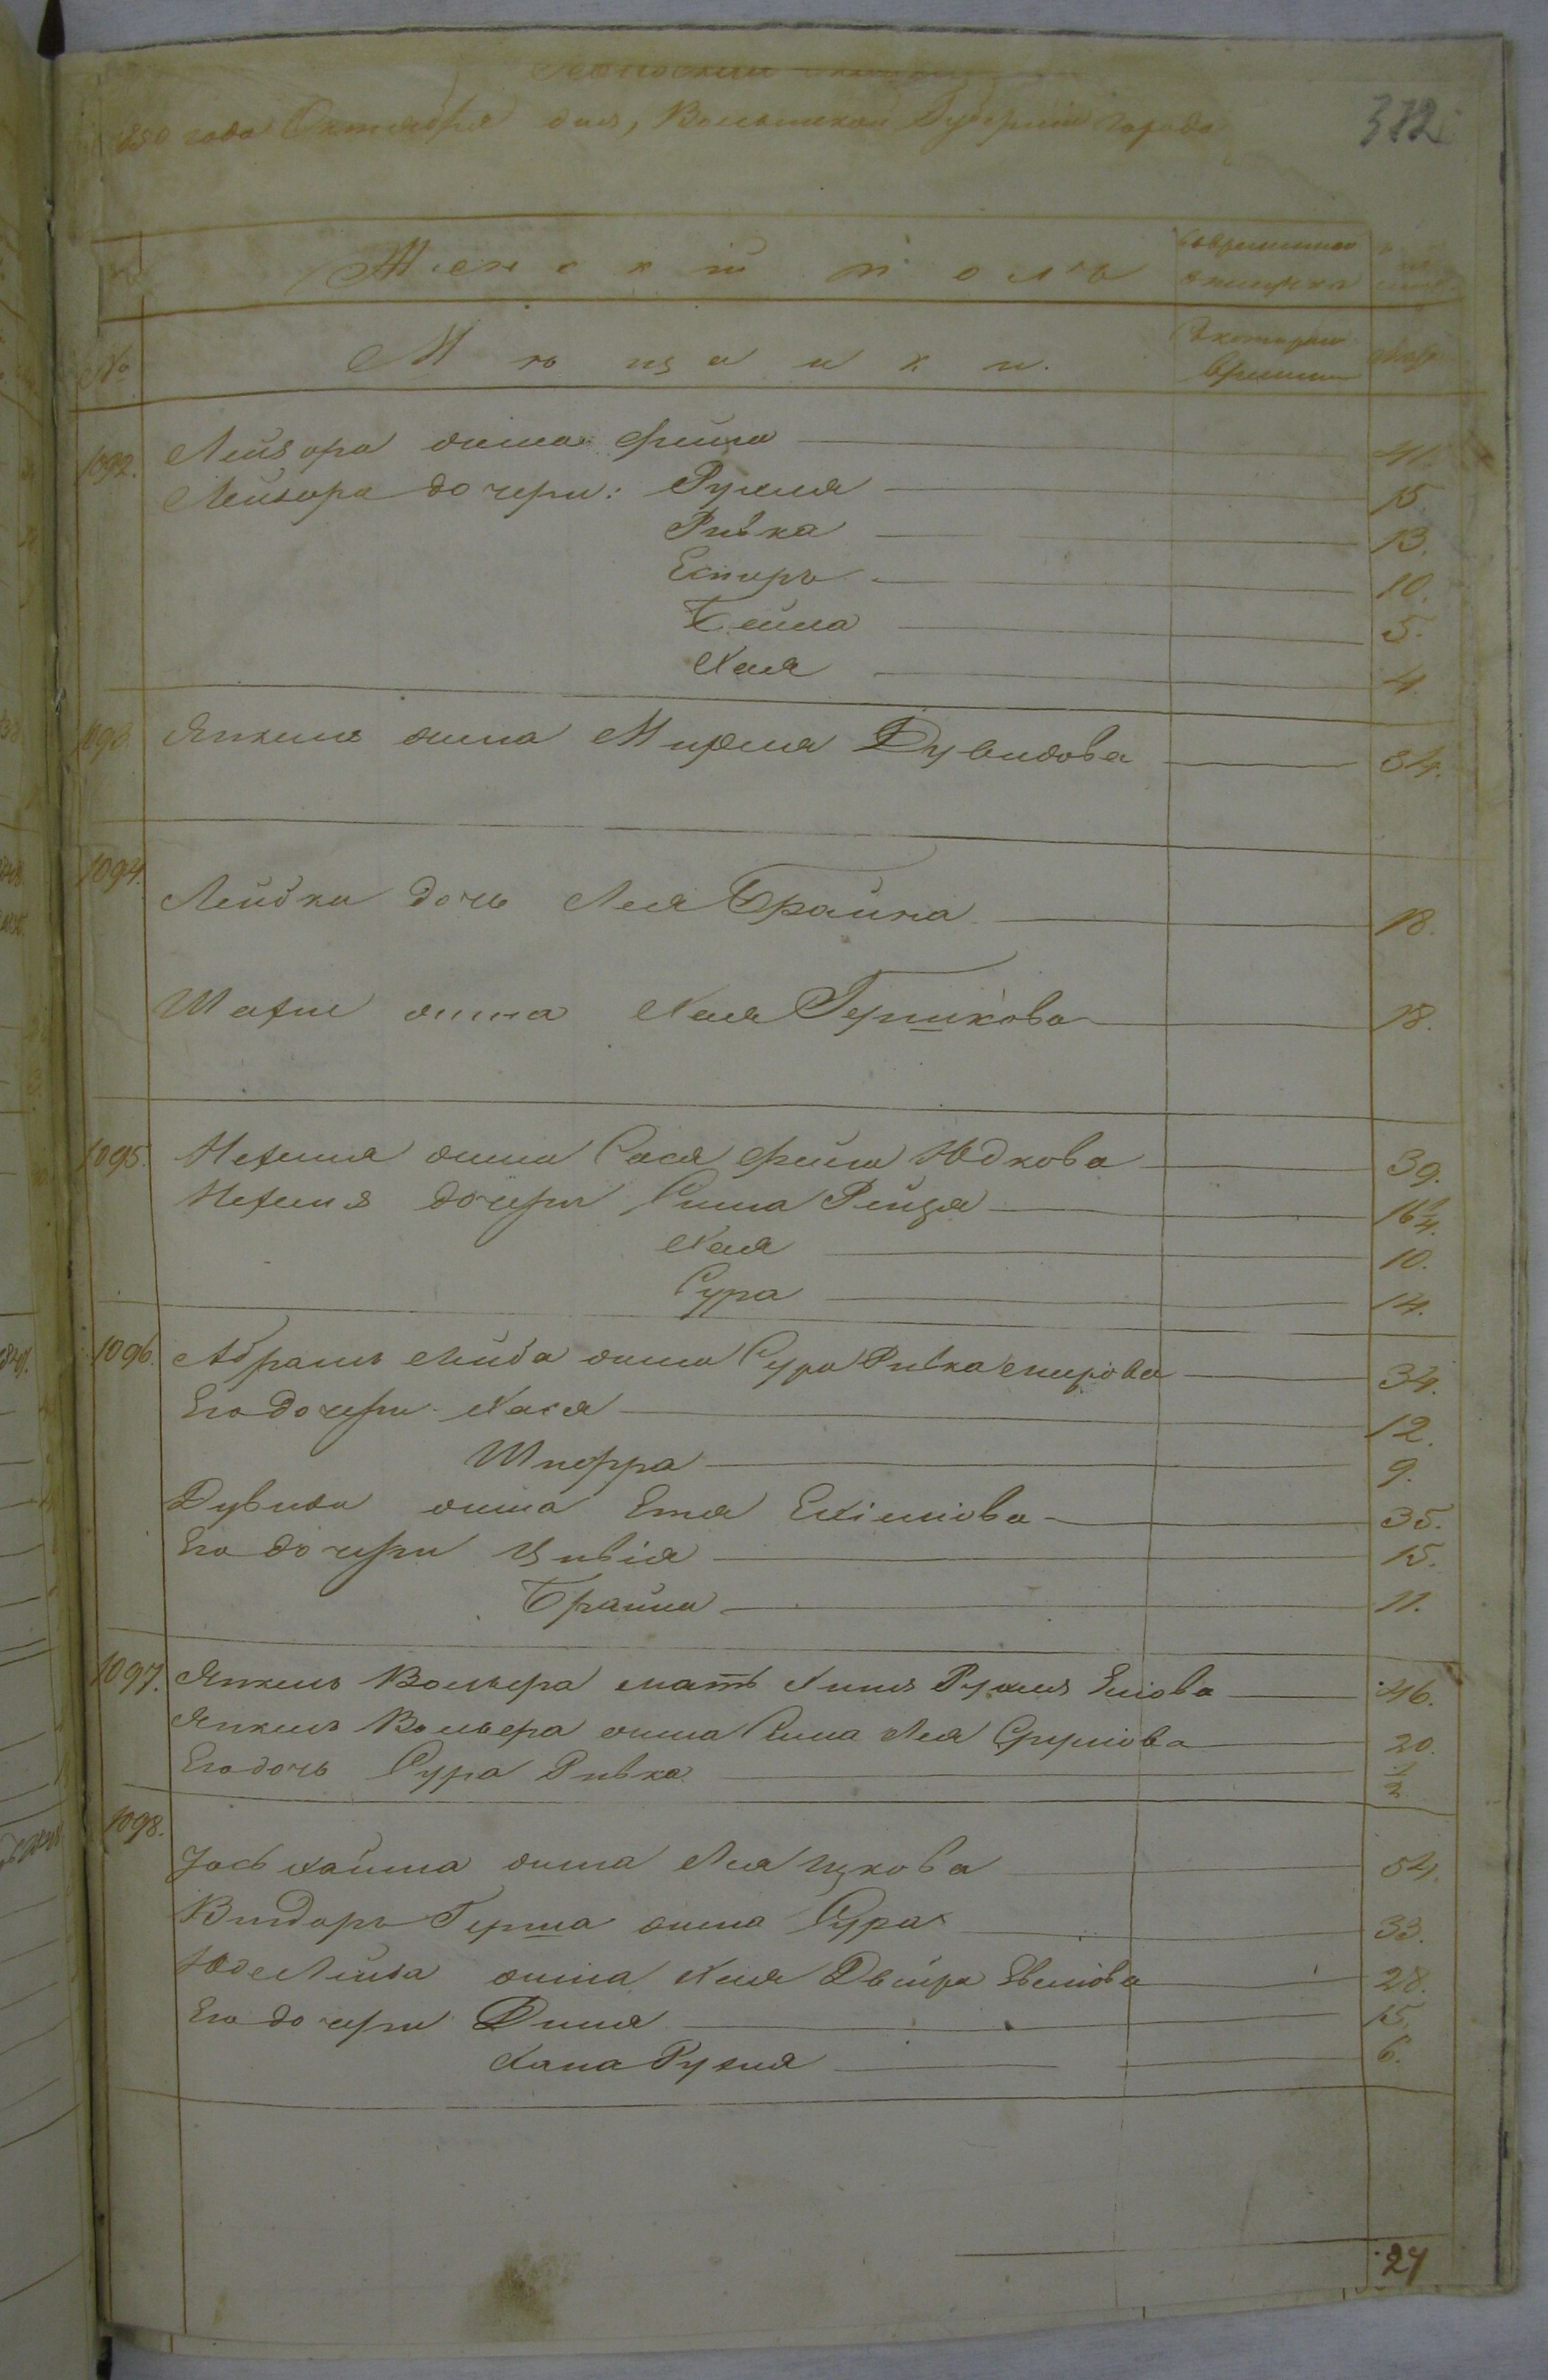 1850 года Октября дня, Волынской Губернии города
372
Женский полъ
№
Мѣщанки.
Временно отлучкѣ
Съ котораго времени
1092. Лейзора жена Фейга 41.
Лейзора дочери: Рухля 15.
Ривка 13.
Естеръ 10.
Бейла 5.
Хая 4.
1093. Янкеля жена Мирля Дувидова 34.
1094. Лейбки дочь Лея Брайна 18.
Мафис жена Хая Гершкова 18.
1095. Нехемя жена Сася Фейга Юдкова 39.
Нехемя дочери Сима Рейзя 16 1/4.
Хая 10.
Сура 14.
1096. Абрамъ Лейба жена Сура Ривка 34.
Его дочери Хася 12.
Шифра 9.
Дувида жена Етя 35.
Его дочери Цивія 15.
Брайна 11.
1097. Янкель Вольфа мать Рухля 46.
Янкель Вольфа жена Сима Лея Сруліова 20.
Его дочь Сура Ривка 1/2
1098. Іось Хаима жена Лея Ицкова 54.
Вигдоръ Герша жена Сура 33.
Юде Лейба жена Хая Двейра 28.
Его дочери Диня 15.
Хана Рухля 6.
27